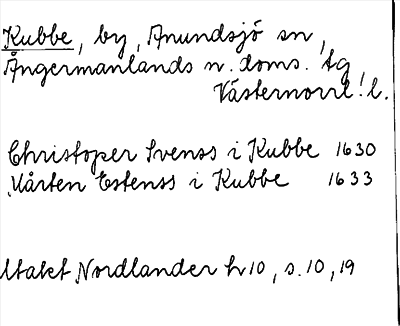 Kubbe, by, Anundsjö sn,
Ångermanlands n. doms. tg,
Västernorrl. l.
Christoper Svenss i Kubbe 1630
Mårten Estenss i Kubbe 1633
Utakt Nordlander h 10, s. 10, 19